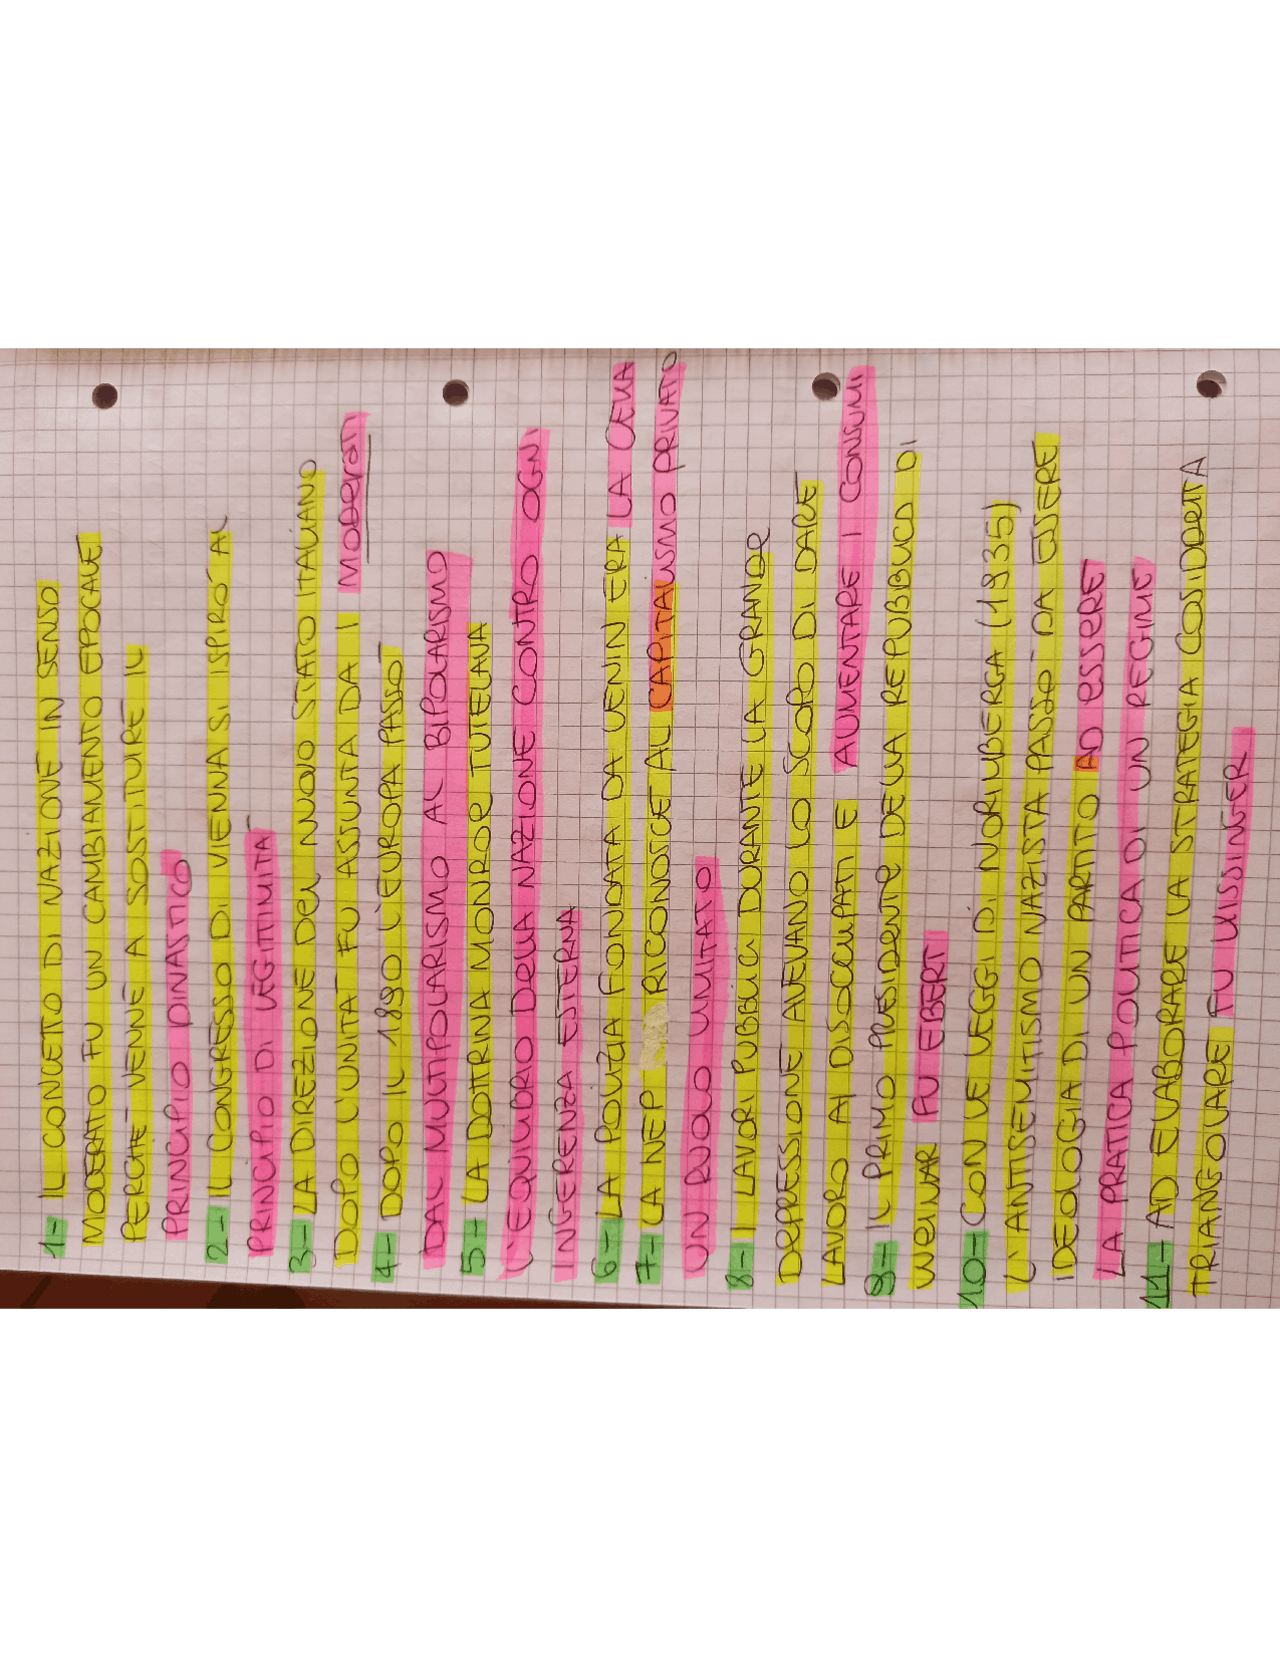 1- IL CONCETTO DI NAZIONE IN SENSO
MODERATO FU UN CAMBIAMENTO EPOCALE
PERCHÉ VENNE A SOSTITUIRE IL
PRINCIPIO DINASTICO
2- IL CONGRESSO DI VIENNA SI ISPIRÓ AL
PRINCIPIO DI LEGITTIMITÁ
3- LA DIREZIONE DEL NUOVO STATO ITALIANO
DOPO L'UNITÁ FU ASSUNTA DA I MODERATI
4- DOPO IL 1890 L'EUROPA PASSÓ
DAL MULTIPOLARISMO AL BIPOLARISMO
5- LA DOTTRINA MONROE TUTELAVA
L'EQUILIBRIO DELLA NAZIONE CONTRO OGNI
INGERENZA ESTERNA
6- LA POLIZIA FONDATA DA LENIN ERA LA CEKA
7- LA NEP RICONOSCE AL CAPITALISMO PRIVATO
UN RUOLO LIMITATO
8- I LAVORI PUBBLICI DURANTE LA GRANDE
DEPRESSIONE AVEVANO LO SCOPO DI DARE
LAVORO AI DISOCCUPATI E AUMENTARE I CONSUMI
9- IL PRIMO PRESIDENTE DELLA REPUBBLICA DI
WEIMAR FU EBERT
10- CON LE LEGGI DI NORIMBERGA (1935)
L'ANTISEMITISMO NAZISTA PASSÓ DA ESSERE
IDEOLOGIA DI UN PARTITO AD ESSERE
LA PRATICA POLITICA DI UN REGIME
11- AD ELABORARE LA STRATEGIA COSIDDETTA
TRIANGOLARE FU KISSINGER